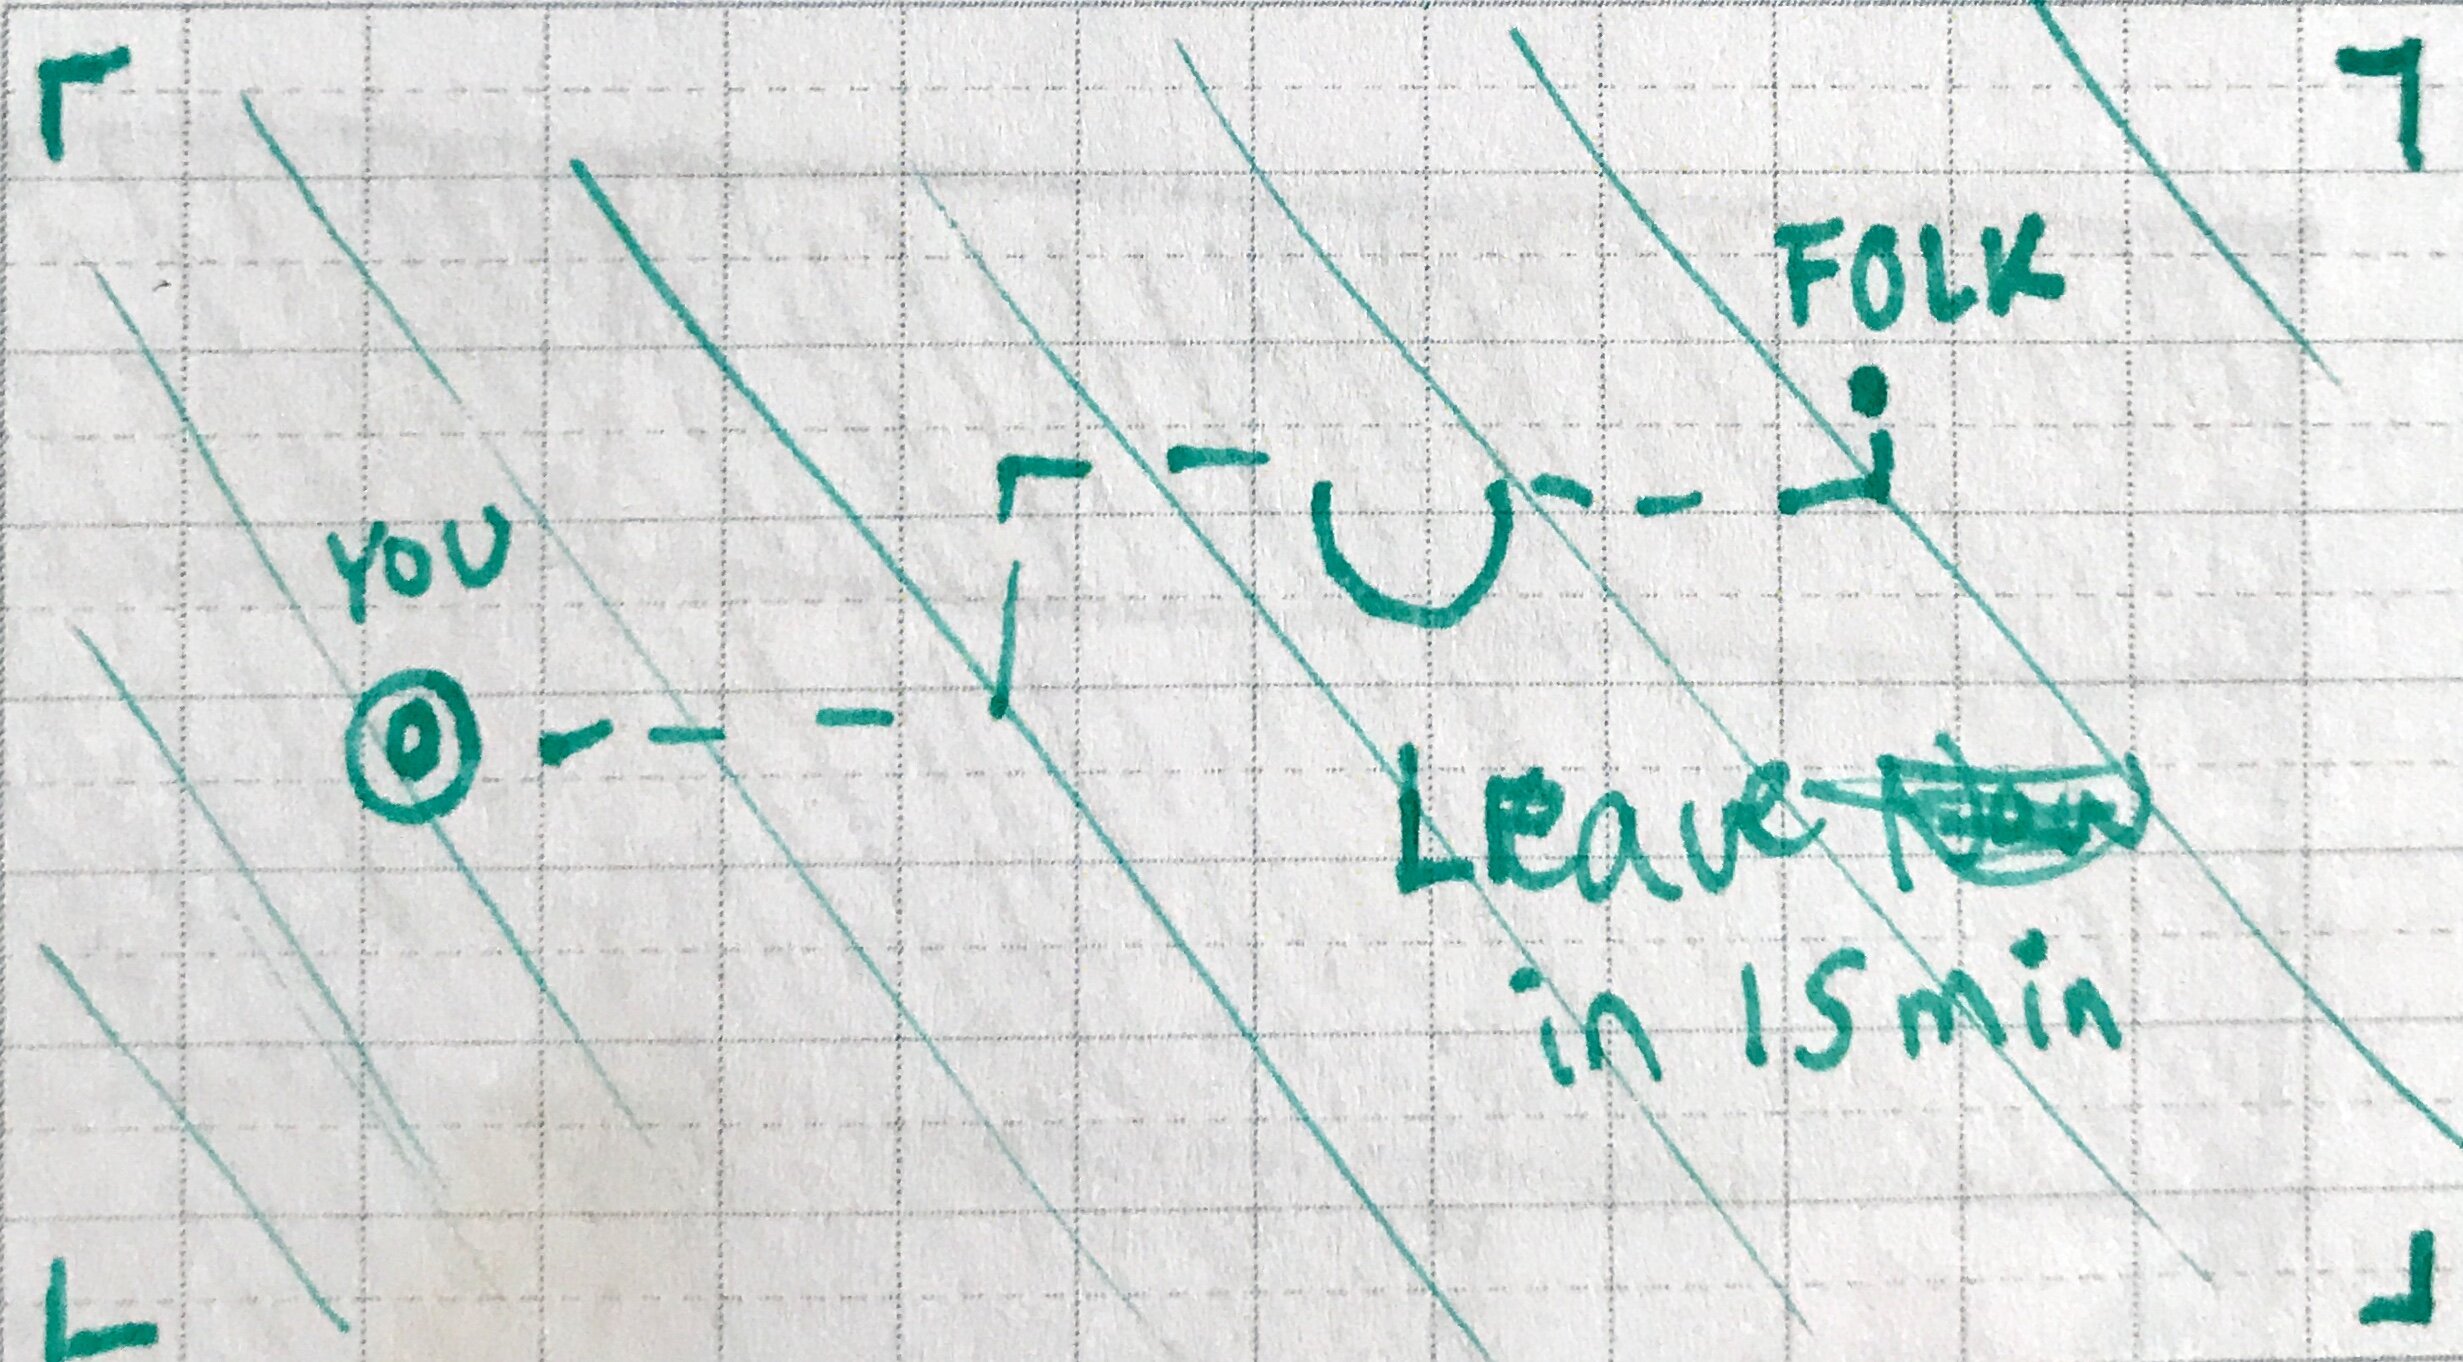 FOLK
YOU
Leave
in 15 min